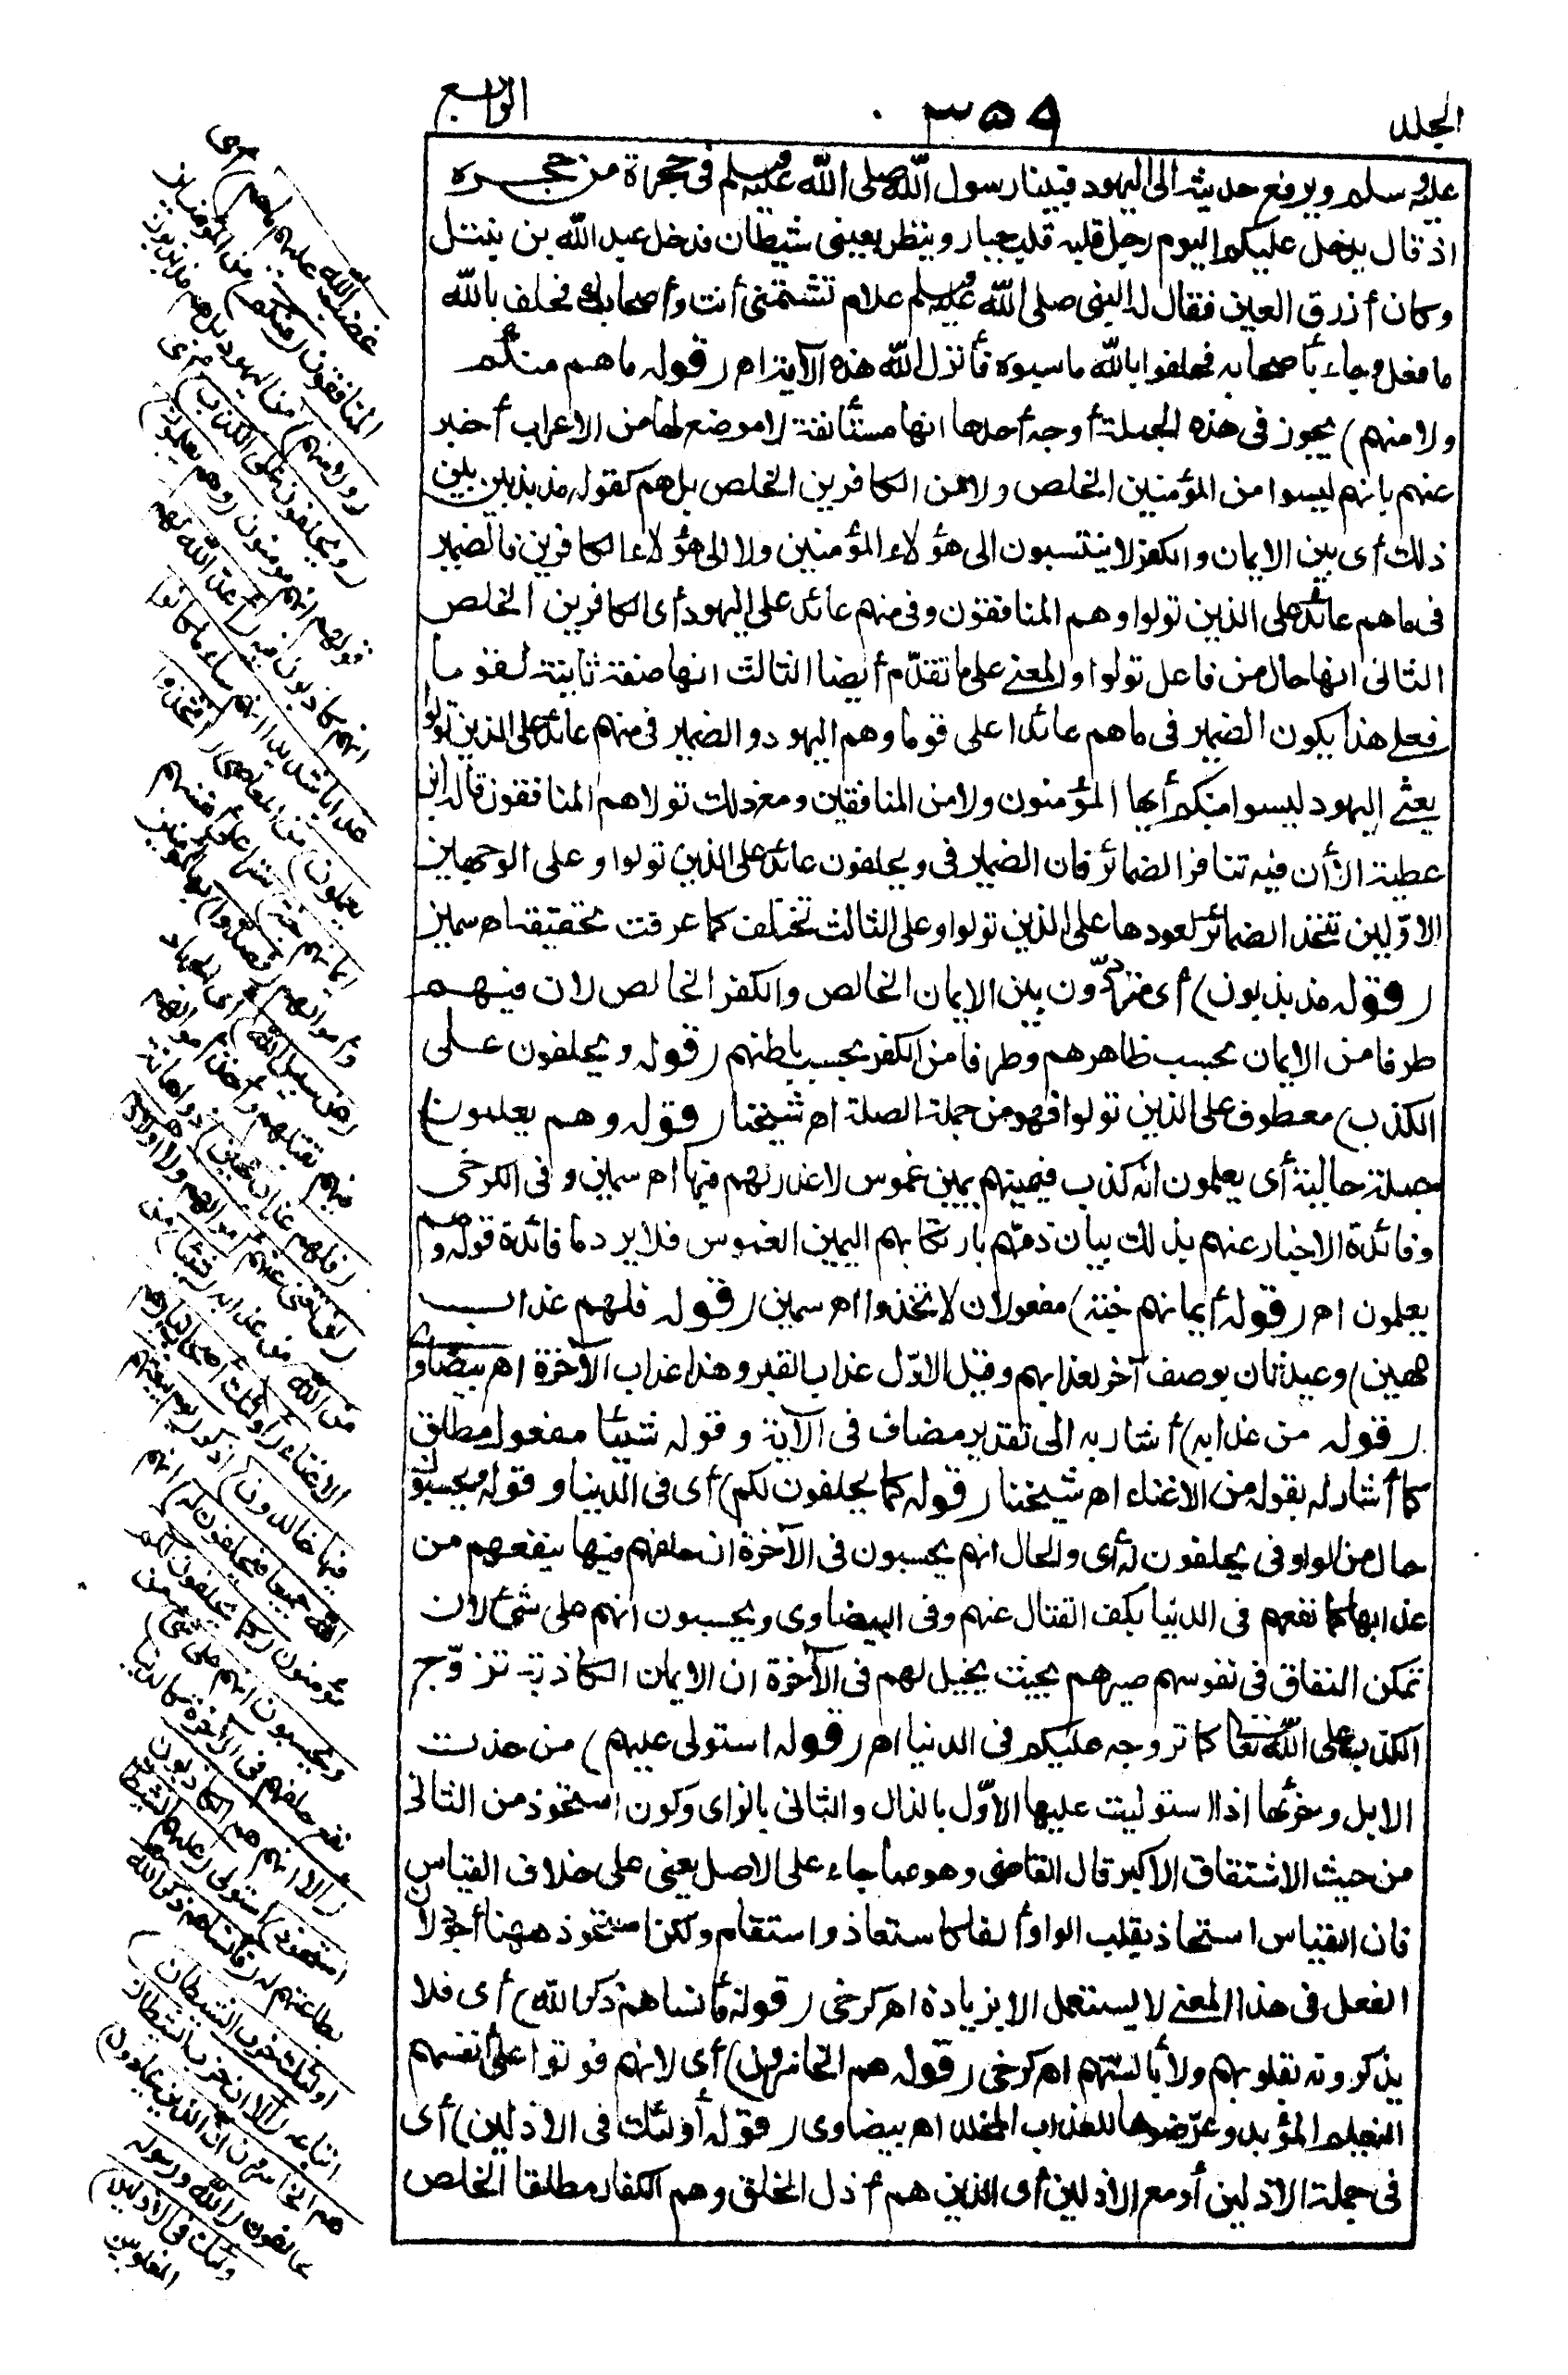 الجلد
٣٥٩
الرابع
عليه وسلم ويرفع حديثه الى اليهود فبينا رسول الله صلى الله عليه وسلم فى حجرة من حجره
اذ قال يدخل عليكم اليوم رجل قلبه قلب جبار وينظر بعينى شيطان فدخل عبد الله بن نبتل
وكان أزرق العين فقال له النبى صلى الله عليه وسلم علام تشتمنى أنت وأصحابك فحلف بالله
ما فعل وجاء بأصحابه فحلفوا بالله ما سبوه فأنزل الله هذه الآية اه (قوله ما هم منكم
ولا منهم) يجوز فى هذه الجملة أوجه أحدها انها مستأنفة لا موضع لها من الاعراب أخبر
عنهم بانهم ليسوا من المؤمنين الخلص ولا من الكافرين الخلص بل هم كقوله مذبذبين بين
ذلك أى بين الايمان والكفر لا ينتسبون الى هؤلاء المؤمنين ولا الى هؤلاء الكافرين فالضمير
فى ما هم عائد على الذين تولوا وهم المنافقون وفى منهم عائد على اليهود أى الكافرين الخلص
الثانى انها حال من فاعل تولوا والمعنى على ما تقدّم أيضا الثالث انها صفة ثانية لقوما
فعلى هذا يكون الضمير فى ما هم عائدا على قوما وهم اليهود والضمير فى منهم عائد على الذين تولوا
يعنى اليهود ليسوا منكم أيها المؤمنون ولا من المنافقين ومع ذلك تولاهم المنافقون قاله ابن
عطية الا أن فيه تنافر الضمائر فان الضمير فى ويحلفون عائد على الذين تولوا وعلى الوجهين
الاوّلين تتخذ الضمائر لعودها على الذين تولوا وعلى الثالث تختلف كما عرفت تحقيقه اه سمين
(قوله مذبذبون) أى متردّدون بين الايمان الخالص والكفر الخالص لان فيهم
طرفا من الايمان بحسب ظاهرهم وطرفا من الكفر بحسب باطنهم (قوله ويحلفون على
الكذب) معطوف على الذين تولوا فهو من جملة الصلة اه شيخنا (قوله وهم يعلمون)
جملة حالية أى يعلمون انه كذب فيمينهم يمين غموس لا عذر لهم فيها اه سمين وفى الكرخى
وفائدة الاخبار عنهم بذلك بيان ذمّهم بارتكابهم اليمين الغموس فلا يرد ما فائدة قوله وهم
يعلمون اه (قوله أيمانهم جنة) مفعولان لاتخذوا اه سمين (قوله فلهم عذاب
مهين) وعيد ثان بوصف آخر لعذابهم وقيل الاوّل عذاب القبر وهذا عذاب الآخرة اه بيضاوى
(قوله من عذابه) أشار به الى تقدير مضاف فى الآية وقوله شيئا مفعول مطلق
كما أشار له بقوله من الاغناء اه شيخنا (قوله كما يحلفون لكم) أى فى الدنيا وقوله ويحسبون
حال من الواو فى يحلفون له أى والحال انهم يحسبون فى الآخرة ان حلفهم فيها ينفعهم من
عذابها كما نفعهم فى الدنيا بكف القتال عنهم وفى البيضاوى ويحسبون انهم على شئ لان
تمكن النفاق فى نفوسهم صيرهم بحيث يخيل لهم فى الآخرة ان الايمان الكاذبة تروّج
الكذب على الله تعالى كما تروجه عليكم فى الدنيا اه (قوله استولى عليهم) من حذت
الابل وحزتها اذا استوليت عليها الاوّل بالذال والثانى بالزاى وكون استحوذ من الثانى
من حيث الاشتقاق الاكبر قال القاضى وهو مما جاء على الاصل يعنى على خلاف القياس
فان القياس استحاذ بقلب الواو ألفا كاستعاذ واستقام ولكن استحوذ ههنا أجود لان
الفعل فى هذا المعنى لا يستعمل الا بزيادة اه كرخى (قوله فأنساهم ذكر الله) أى فلا
يذكرونه بقلوبهم ولا بألسنتهم اه كرخى (قوله هم الخاسرون) أى لانهم فوتوا على أنفسهم
النعيم المؤبد وعرّضوها للعذاب المخلد اه بيضاوى (قوله أولئك فى الاذلين) أى
فى جملة الاذلين أو مع الاذلين أى الذين هم أذل الخلق وهم الكفار مطلقا الخلص
غضب الله عليهم ما هم) أى
المنافقون (منكم) من المؤمنين
(ولا منهم) من اليهود بل هم مذبذبون
(ويحلفون على الكذب) أى
قولهم انهم مؤمنون (وهم يعلمون)
انهم كاذبون فيه (أعدّ الله لهم
عذابا شديدا انهم ساء ما كانوا
يعملون) من المعاصى (اتخذوا
أيمانهم جنة) سترا على أنفسهم
وأموالهم (فصدّوا) بها المؤمنين
(عن سبيل الله) أى الجهاد
فيهم بقتلهم وأخذ أموالهم
(فلهم عذاب مهين) ذو اهانة
(لن تغنى عنهم أموالهم ولا أولادهم
من الله) من عذابه (شيئا) من
الاغناء (أولئك أصحاب النار هم
فيها خالدون) اذكر (يوم يبعثهم
الله جميعا فيحلفون له) انهم
مؤمنون (كما يحلفون لكم
ويحسبون انهم على شئ) من
نفع حلفهم فى الآخرة كالدنيا
(ألا انهم هم الكاذبون
استحوذ) استولى (عليهم الشيطان)
بطاعتهم له (فأنساهم ذكر الله
أولئك حزب الشيطان)
اتباعه (ألا ان حزب الشيطان
هم الخاسرون ان الذين يحادون)
يخالفون (الله ورسوله
أولئك فى الاذلين)
المغلوبين